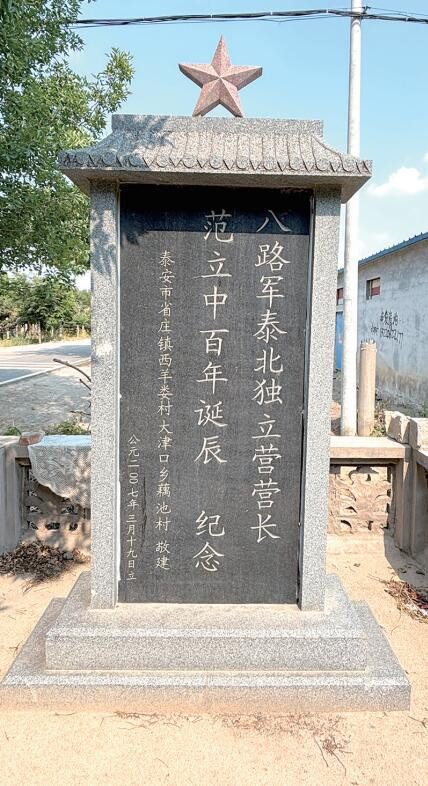 八路军泰北独立营营长
范立中百年诞辰 纪念
泰安市省庄镇西羊娄村大津口乡藕池村 敬建
公元二〇〇七年三月十九日立